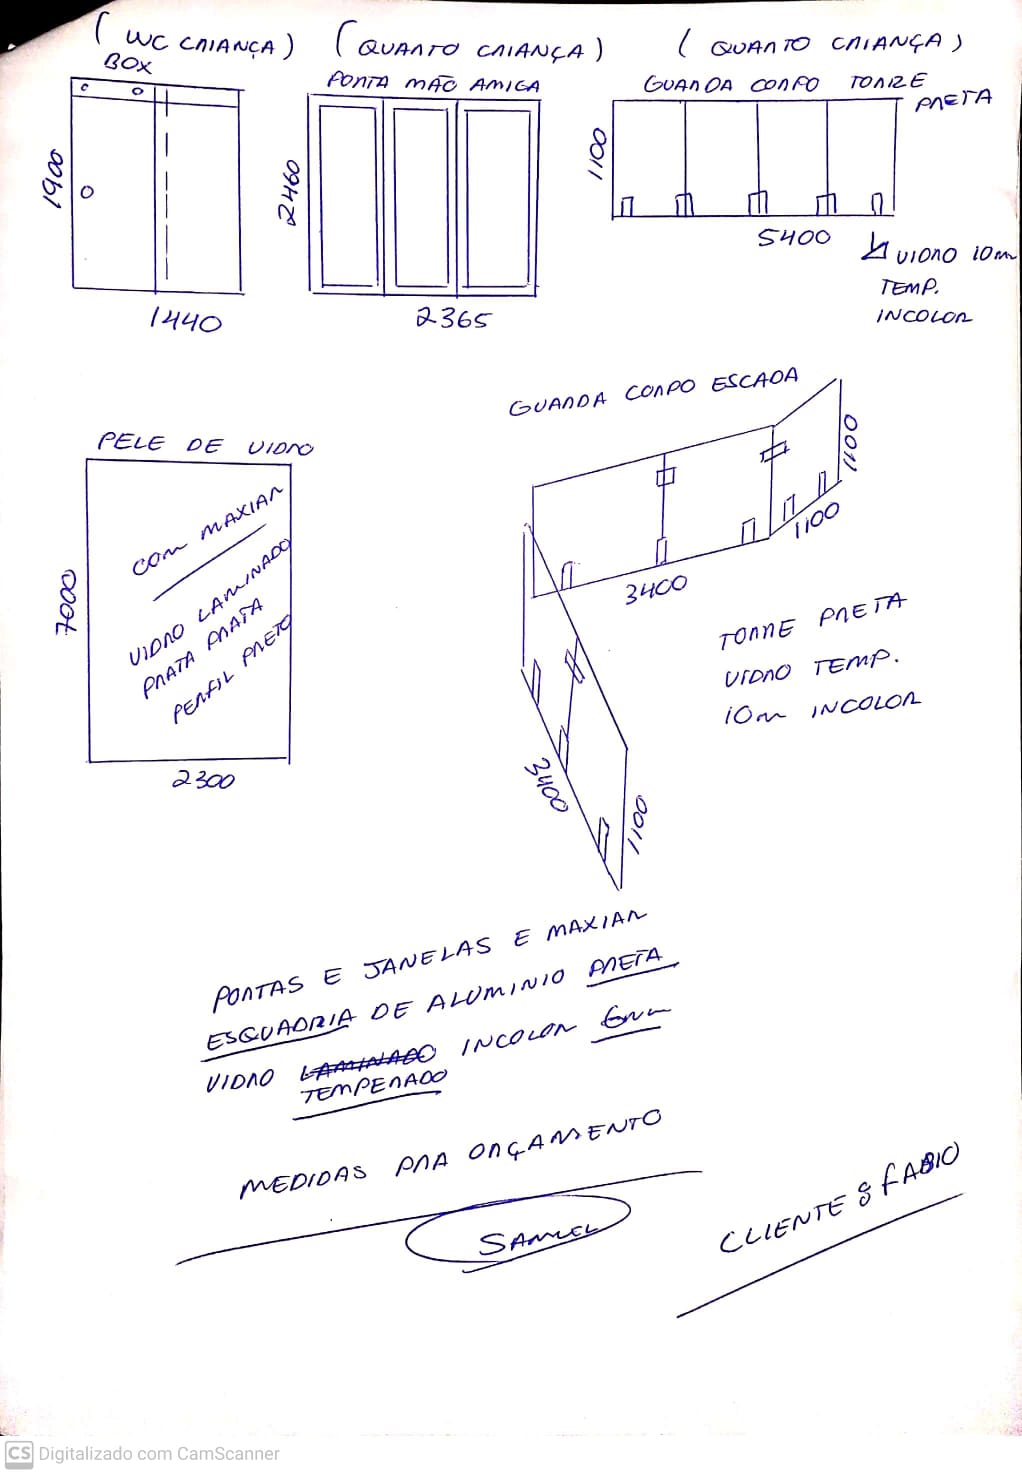 ( WC CRIANÇA )
BOX
1900
1440
( QUARTO CRIANÇA )
PORTA MÃO AMIGA
2460
2365
( QUARTO CRIANÇA )
GUARDA CORPO TORRE
PRETA
1100
5400
VIDRO 10m
TEMP.
INCOLOR
PELE DE VIDRO
7000
COM MAXIAR
VIDRO LAMINADO
PRATA PRATA
PERFIL PRETO
2300
GUARDA CORPO ESCADA
1100
1100
3400
3400
1100
TORRE PRETA
VIDRO TEMP.
10m INCOLOR
PORTAS E JANELAS E MAXIAR
ESQUADRIA DE ALUMINIO PRETA
VIDRO LAMINADO INCOLOR 6mm
TEMPERADO
MEDIDAS PRA ORÇAMENTO
SAMUEL
CLIENTE : FABIO
CS Digitalizado com CamScanner